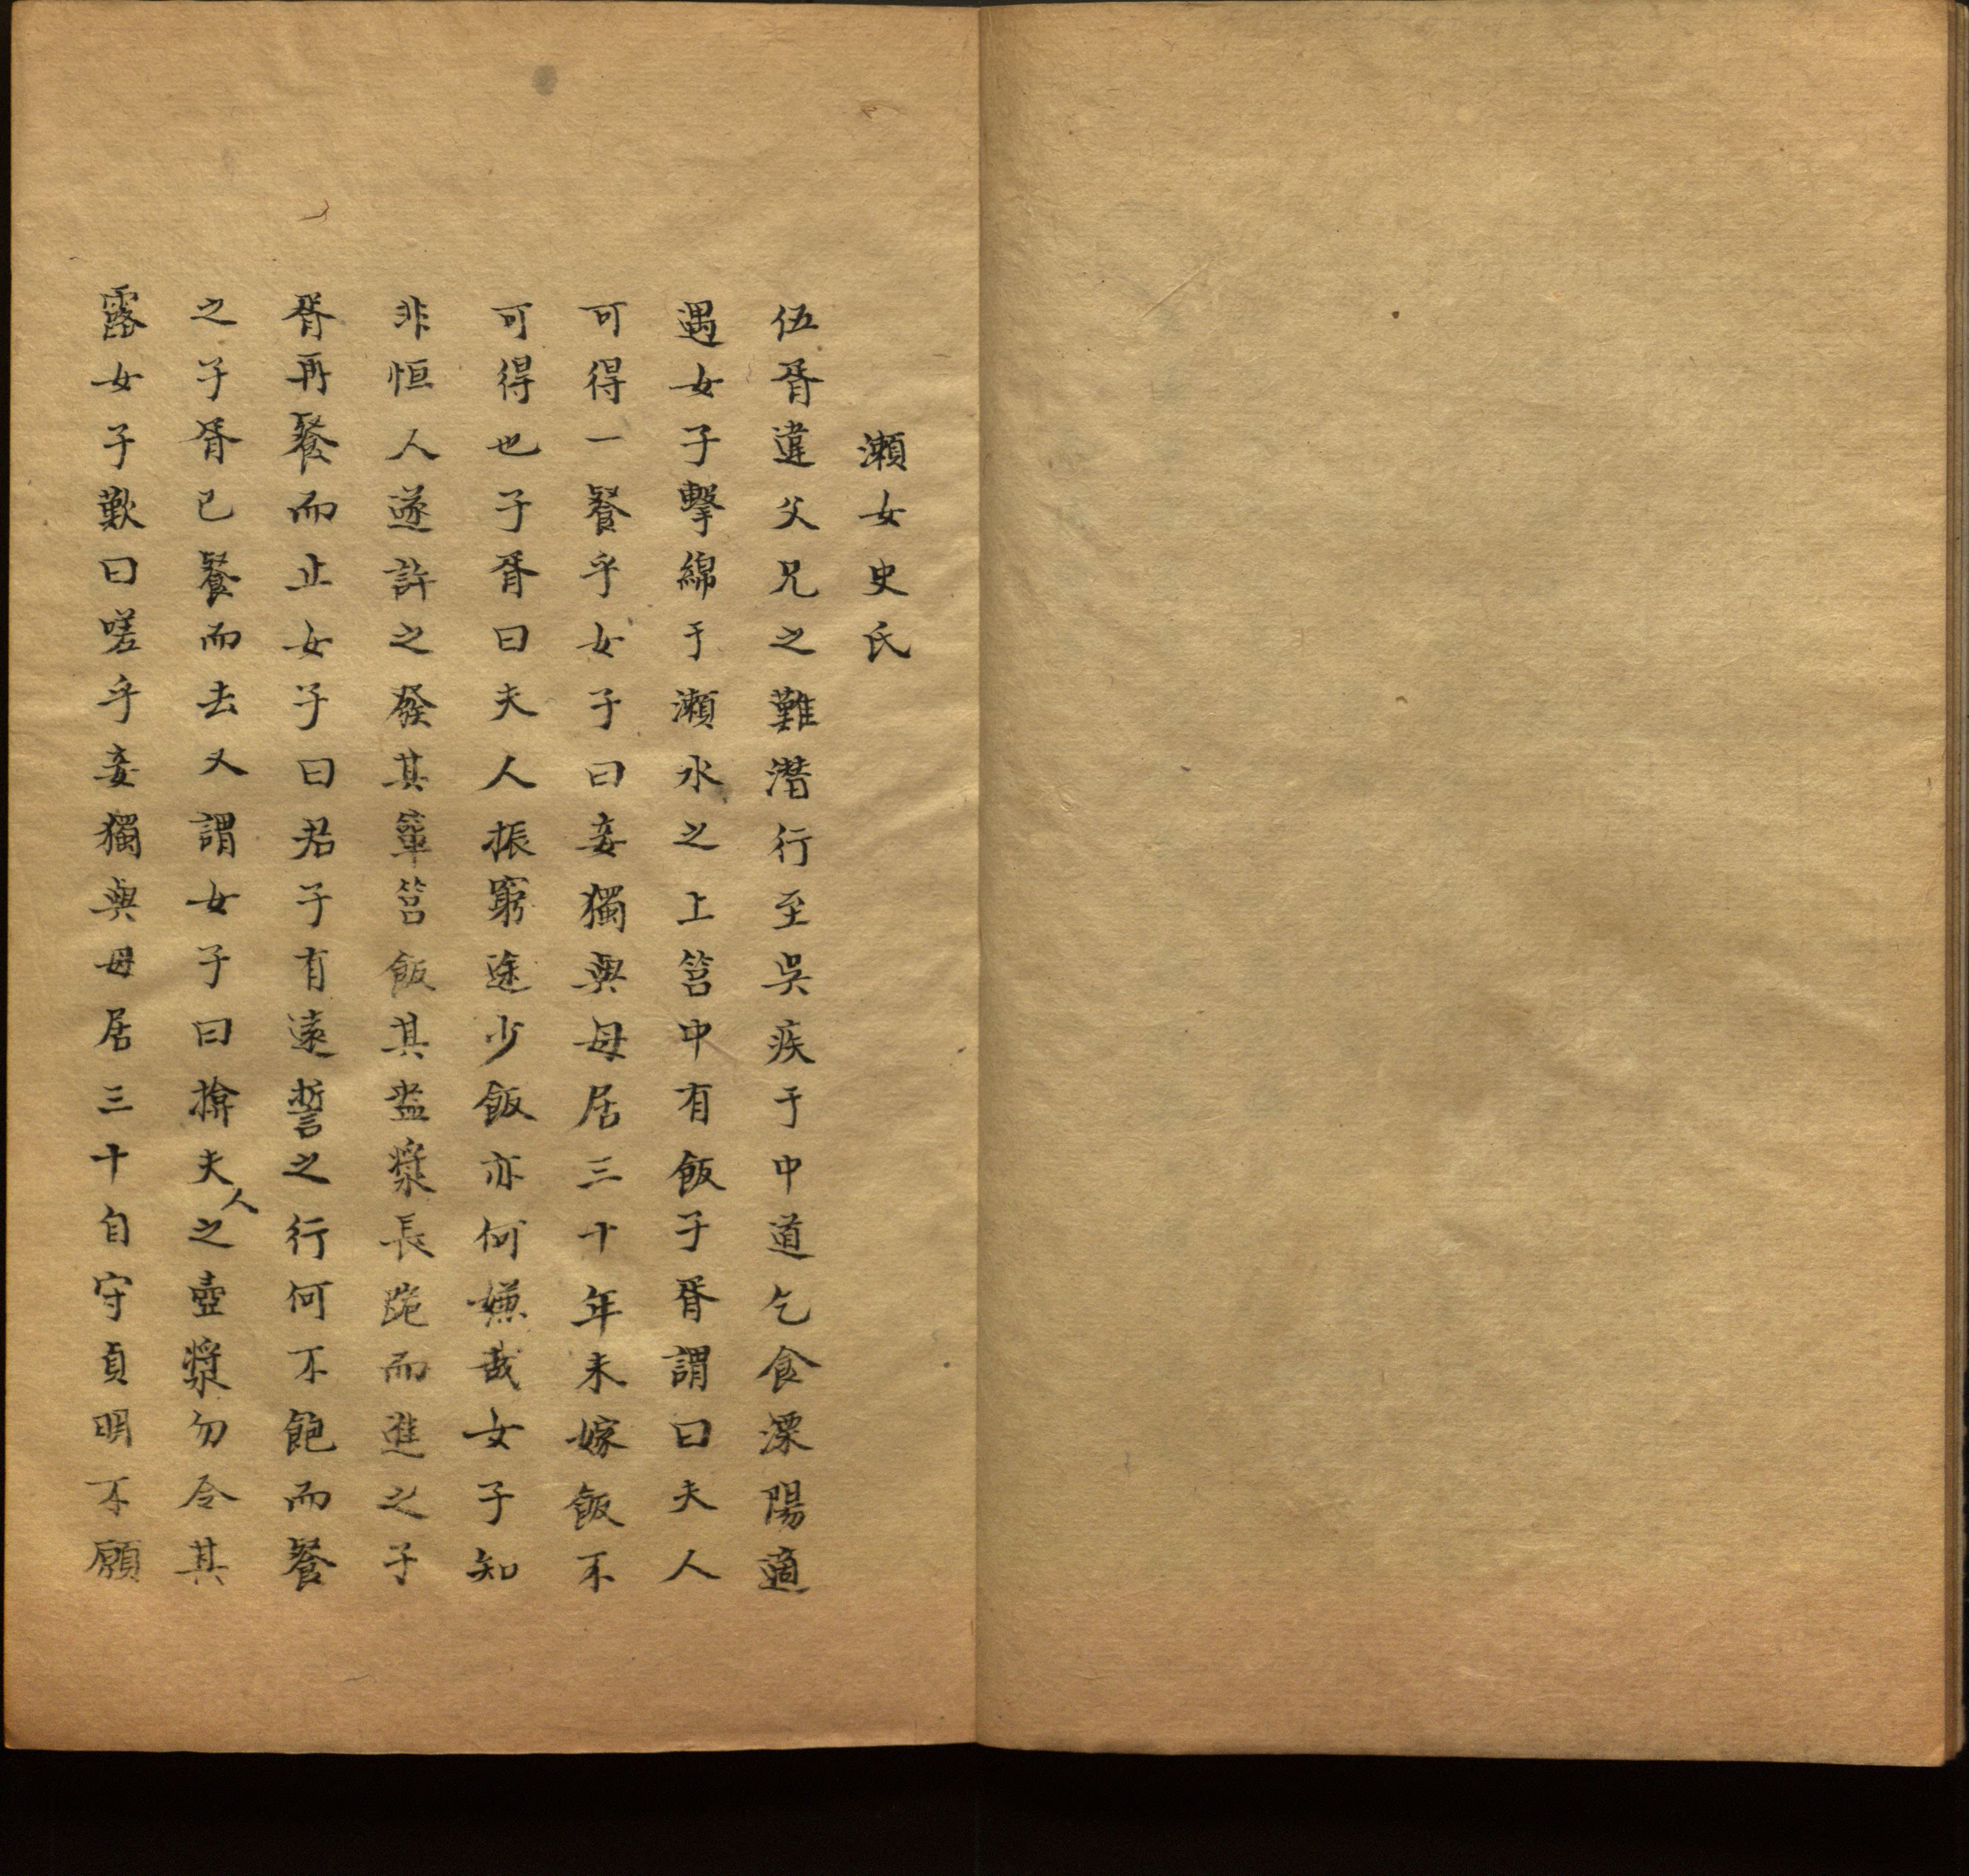 瀨女史氏
伍胥違父兄之難潛行至吳疾于中道乞食溧陽適
遇女子擊綿于瀨水之上筥中有飯子胥謂曰夫人
可得一餐乎女子曰妾獨與母居三十年未嫁飯不
可得也子胥曰夫人振窮途少飯亦何嫌哉女子知
非恒人遂許之發其簞筥飯其盎漿長跪而進之子
胥再餐而止女子曰君子有遠誓之行何不飽而餐
之子胥已餐而去又謂女子曰揜夫人之壺漿勿令其
露女子歎曰嗟乎妾獨與母居三十自守貞明不願